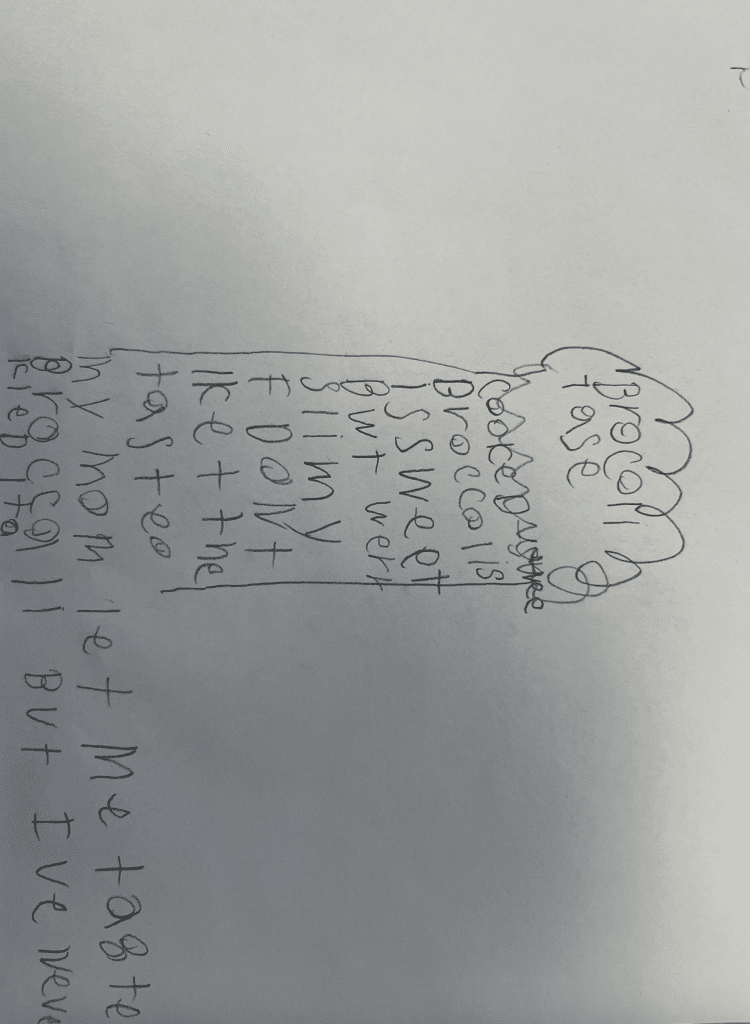 Brocoli
tase
Cooked
Broccolis
is sweet
But wen
Slimy
I Dont
like the
tasteo
My mom let Me taste
Broccoli But Ive neve